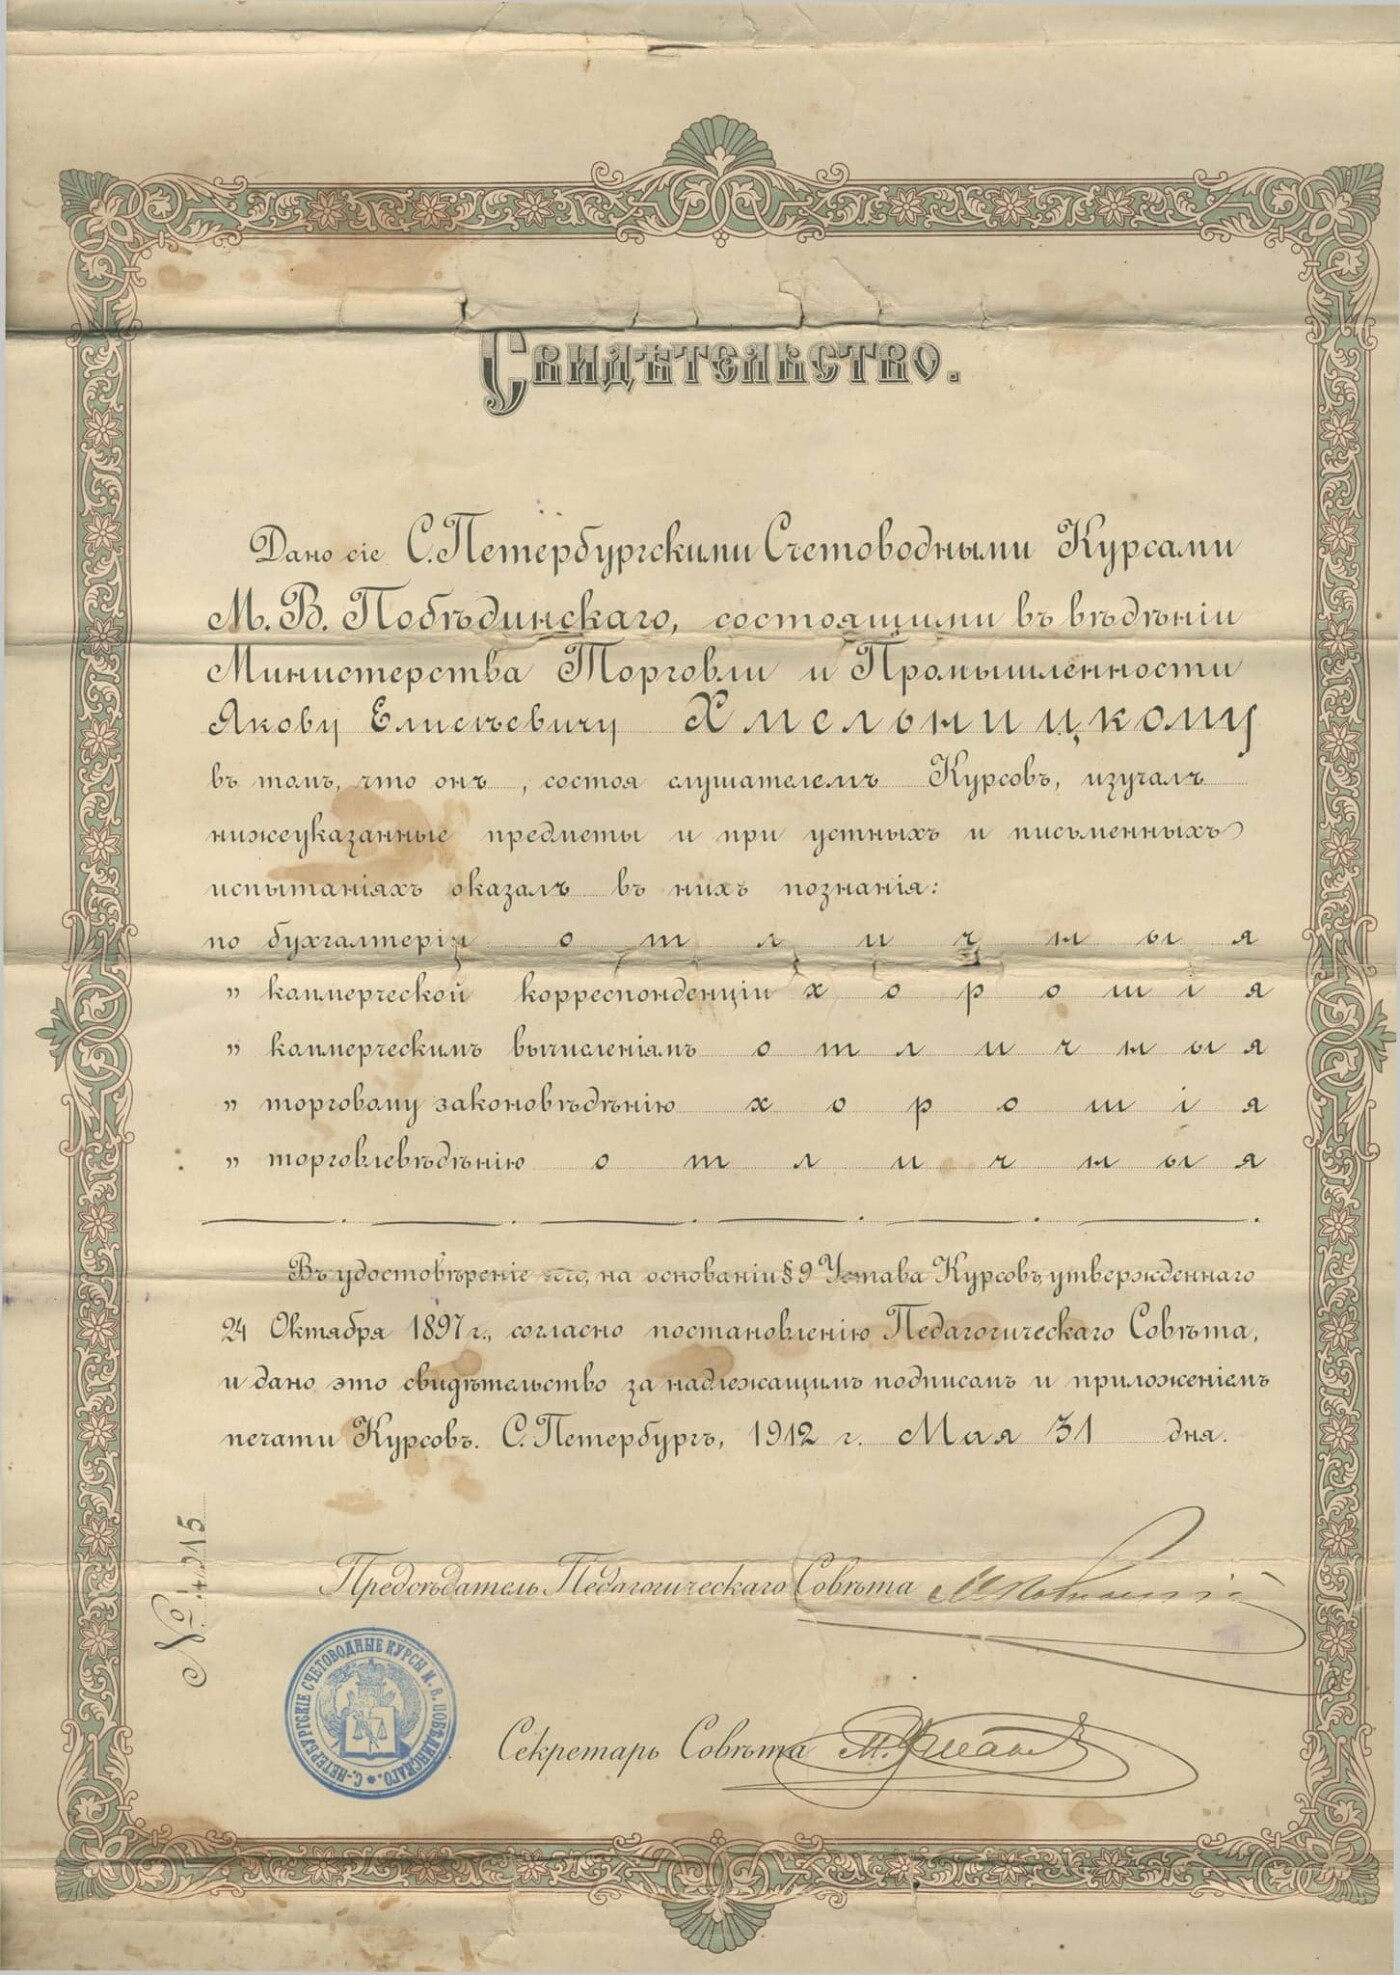 Свидѣтельство.
Дано сіе С.Петербургскими Счетоводными Курсами
М. В. Побѣдинскаго, состоящими въ вѣдѣніи
Министерства Торговли и Промышленности
Якову Елисѣевичу Хмельницкому
въ томъ, что онъ, состоя слушателемъ Курсовъ, изучалъ
нижеуказанные предметы и при устныхъ и письменныхъ
испытаніяхъ оказалъ въ нихъ познанія:
по бухгалтеріи отличныя
„ коммерческой корреспонденціи хорошія
„ коммерческимъ вычисленіямъ отличныя
„ торговому законовѣдѣнію хорошія
„ торговлевѣдѣнію отличныя
Въ удостовѣреніе чего, на основаніи § 9 Устава Курсовъ, утвержденнаго
24 Октября 1897 г., согласно постановленію Педагогическаго Совѣта,
и дано это свидѣтельство за надлежащимъ подписомъ и приложеніемъ
печати Курсовъ. С. Петербургъ, 1912 г. Мая 31 дня.
№ 4215
Предсѣдатель Педагогическаго Совѣта
С.-ПЕТЕРБУРГСКІЕ СЧЕТОВОДНЫЕ КУРСЫ М. В. ПОБѢДИНСКАГО.
Секретарь Совѣта